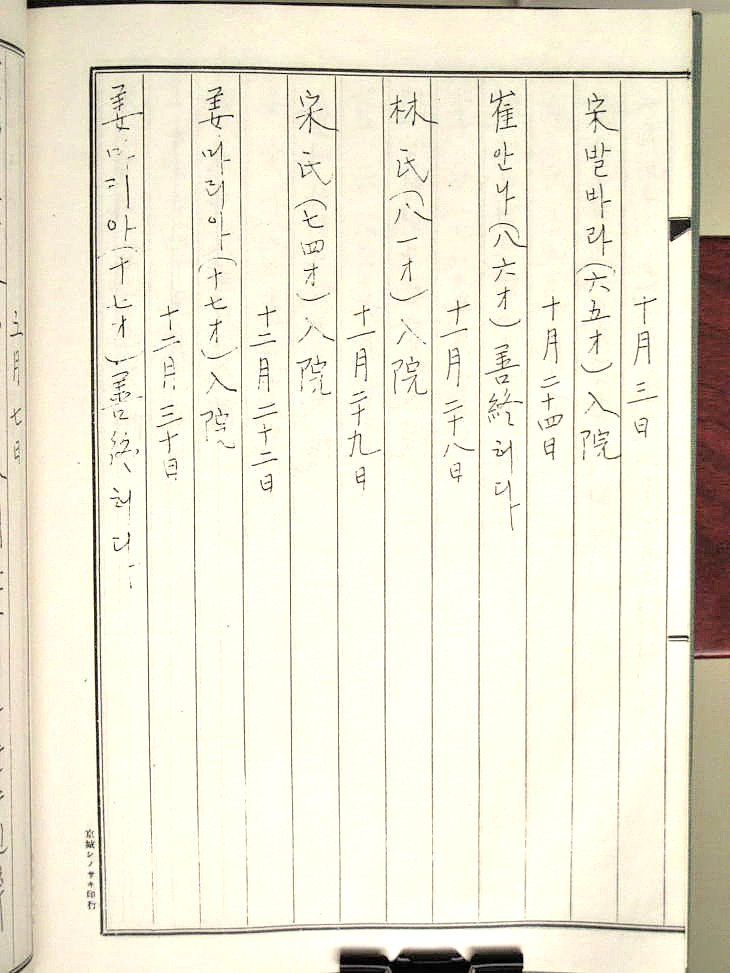 十月三日
宋발바라(六五才)入院
十月二十四日
崔안나(八六才)善終하다
十一月二十八日
林氏(八一才)入院
十一月二十九日
宋氏(七四才)入院
十二月二十二日
姜마리아(十七才)入院
十二月三十日
姜마리아(十七才)善終하다
京城シノサキ印行
月七日